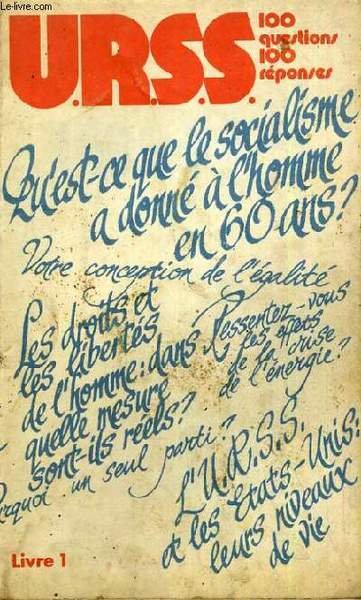 Le-livre.com
U.R.S.S.
100
questions
100
réponses
Qu'est-ce que le socialisme
a donné à l'homme
en 60 ans?
Votre conception de l'égalité
Les droits et
les libertés
de l'homme: dans
quelle mesure
sont-ils réels?
Ressentez-vous
les effets
de la crise
de l'énergie?
Pourquoi un seul parti?
L'U.R.S.S.
et les États-Unis:
leurs niveaux
de vie
Livre 1